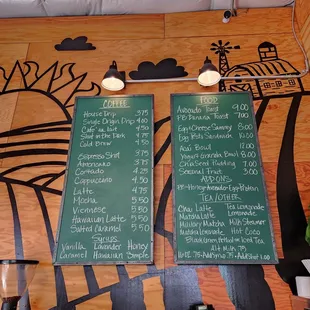 COFFEE
House Drip 3.75
Single Origin Drip 4.00
Cafe au lait 4.50
Shot in the Dark
Cold Brew
Espresso Shot
Americano 3.75
Cortado 4.25
Cappuccino 4.50
Latte 4.75
Mocha 5.50
Viennese 5.50
Hawaiian Latte 5.50
Salted Caramel 5.50
Syrups
Vanilla Lavender Honey
Caramel Hawaiian Simple
FOOD
Avocado Toast 9.00
PB Banana Toast 7.00
Egg & Cheese Sammy 8.00
Egg Pesto Sandwich
Açaí Bowl 12.00
Yogurt Granola Bowl 8.00
Chia Seed Pudding
Seasonal Fruit 3.00
ADD ONS
TEA/OTHER
Chai Latte Tea Lemonade
Matcha Latte Lemonade
Military Matcha Milk Steamer
Matcha Lemonade Hot Cocoa